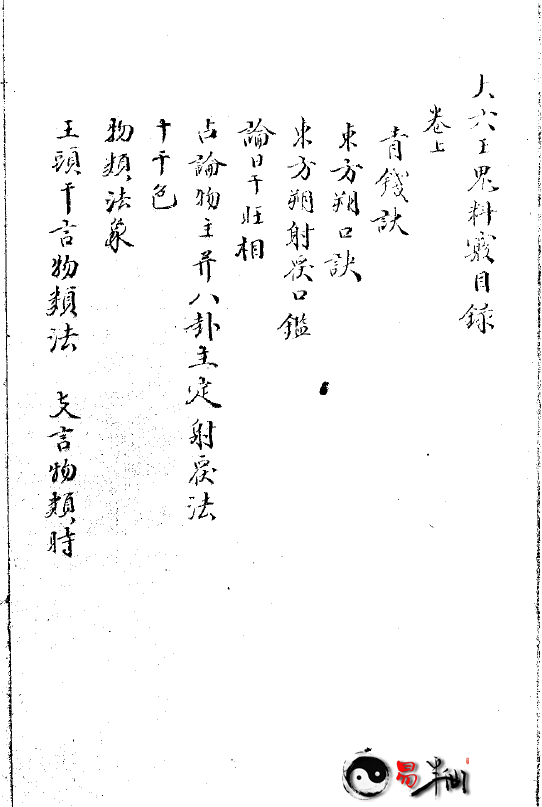 大六壬鬼料竅目錄
卷上
青錢訣
東方朔口訣
東方朔射覆口鑑
論日干旺相
占論物主并八卦主定射覆法
十干色
物類法象
王頭干言物類法 支言物類時
易半仙